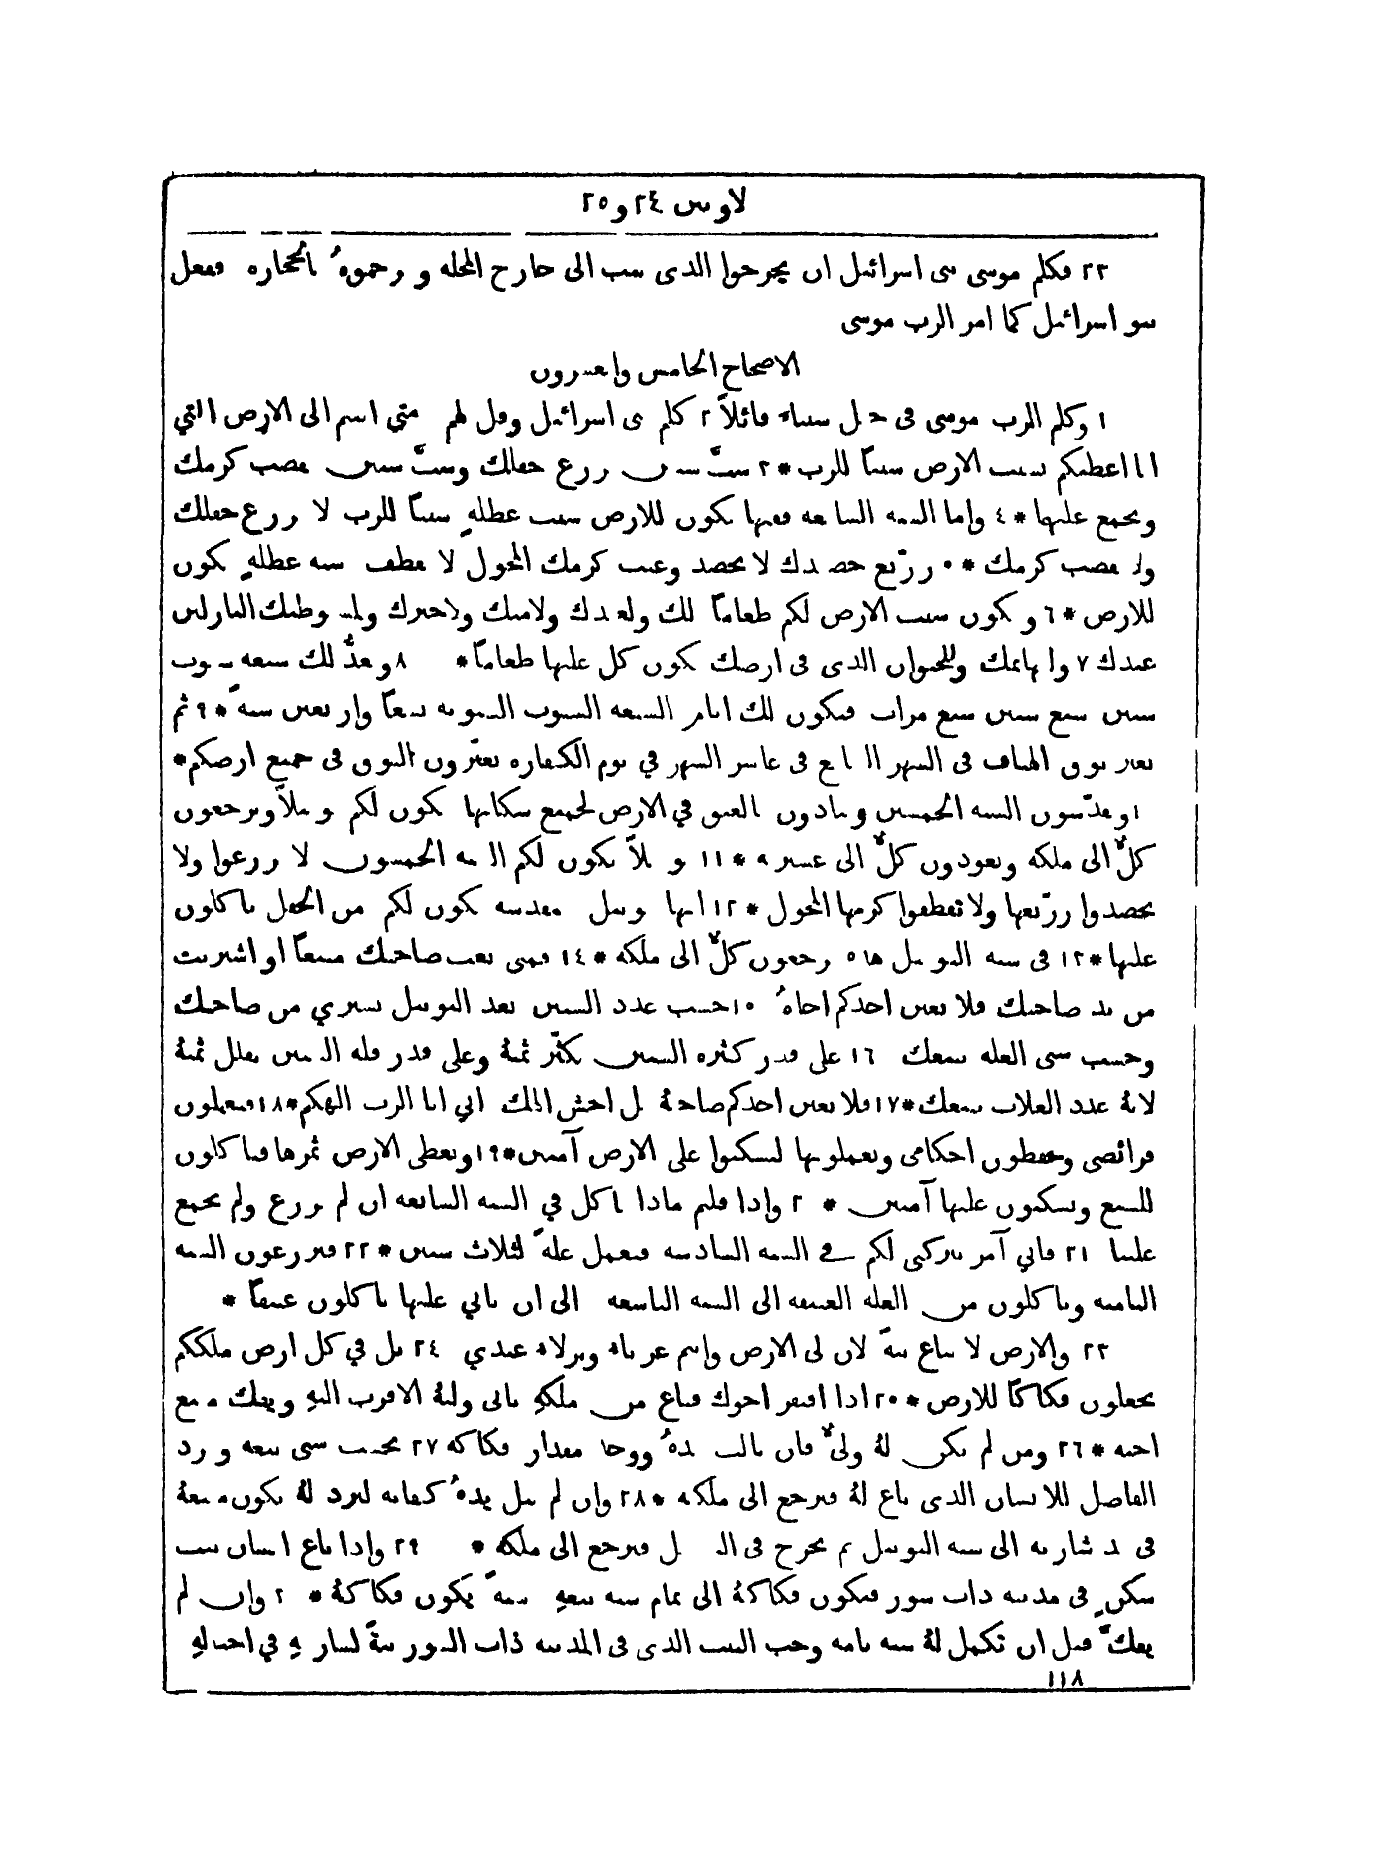 لاويين ٢٤ و ٢٥
٢٣ فكلم موسى بني اسرائيل ان يخرجوا الذي سب الى خارج المحلة ويرجموهُ بالحجارة ففعل
بنو اسرائيل كما امر الرب موسى
الاصحاح الخامس والعشرون
١ وكلم الرب موسى في جبل سيناء قائلاً ٢ كلم بني اسرائيل وقل لهم متى اتيتم الى الارض التي
انا اعطيكم تسبت الارض سبتاً للرب * ٣ ستَّ سنين تزرع حقلك وستَّ سنين تقضب كرمك
وتجمع غلتها * ٤ واما السنة السابعة ففيها يكون للارض سبت عطلةٍ سبتاً للرب لا تزرع حقلك
ولا تقضب كرمك * ٥ زرّيع حصيدك لا تحصد وعنب كرمك المحول لا تقطف سنة عطلةٍ تكون
للارض * ٦ ويكون سبت الارض لكم طعاماً لك ولعبدك ولامتك ولاجيرك ولمستوطنك النازلين
عندك ٧ ولبهائمك وللحيوان الذي في ارضك تكون كل غلتها طعاماً * ٨ وتعدُّ لك سبعة سبوت
سنين سبع سنين سبع مرات فتكون لك ايام السبعة السبوت السنوية تسعاً واربعين سنةً * ٩ ثم
تعبر بوق الهتاف في الشهر السابع في عاشر الشهر في يوم الكفارة تعبّرون البوق في جميع ارضكم *
١٠ وتقدّسون السنة الخمسين وتنادون بالعتق في الارض لجميع سكانها تكون لكم يوبيلاً وترجعون
كلٌّ الى ملكه وتعودون كلٌّ الى عشيرته * ١١ يوبيلاً تكون لكم السنة الخمسون لا تزرعوا ولا
تحصدوا زرّيعها ولا تقطفوا كرمها المحول * ١٢ انها يوبيل مقدسة تكون لكم من الحقل تاكلون
غلتها * ١٣ في سنة اليوبيل هذه ترجعون كلٌّ الى ملكه * ١٤ فمتى بعت صاحبك مبيعاً او اشتريت
من يد صاحبك فلا يغبن احدكم اخاهُ ١٥ حسب عدد السنين بعد اليوبيل تشتري من صاحبك
وحسب سني الغلة يبيعك ١٦ على قدر كثرة السنين تكثّر ثمنهُ وعلى قدر قلة السنين تقلل ثمنهُ
لانهُ عدد الغلات يبيعك * ١٧ فلا يغبن احدكم صاحبهُ بل اخش الهك اني انا الرب الهكم * ١٨ فتعملون
فرائضي وتحفظون احكامي وتعملونها لتسكنوا على الارض آمنين * ١٩ وتعطي الارض ثمرها فتاكلون
للشبع وتسكنون عليها آمنين * ٢٠ واذا قلتم ماذا ناكل في السنة السابعة ان لم نزرع ولم نجمع
غلتنا ٢١ فاني آمر ببركتي لكم في السنة السادسة فتعمل غلةً لثلاث سنين * ٢٢ فتزرعون السنة
الثامنة وتاكلون من الغلة العتيقة الى السنة التاسعة الى ان تاتي غلتها تاكلون عتيقاً *
٢٣ والارض لا تباع بتةً لان لي الارض وانتم غرباء ونزلاء عندي ٢٤ بل في كل ارض ملككم
تجعلون فكاكاً للارض * ٢٥ اذا افتقر اخوك فباع من ملكهِ ياتي وليهُ الاقرب اليهِ ويفك مبيع
اخيه * ٢٦ ومن لم يكن لهُ وليٌّ فان نالت يدهُ ووجد مقدار فكاكه ٢٧ يحسب سني بيعه ويرد
الفاضل للانسان الذي باع لهُ فيرجع الى ملكه * ٢٨ وان لم تنل يدهُ كفاية ليرد لهُ يكون مبيعهُ
في يد شاريه الى سنة اليوبيل ثم يخرج في اليوبيل فيرجع الى ملكه * ٢٩ واذا باع انسان بيت
سكنٍ في مدينة ذات سور فيكون فكاكهُ الى تمام سنة بيعهِ سنةً يكون فكاكهُ * ٣٠ وان لم
يفكَّ قبل ان تكمل لهُ سنة تامة وجب البيت الذي في المدينة ذات السور بتةً لشاريهِ في اجيالهِ
١١٨